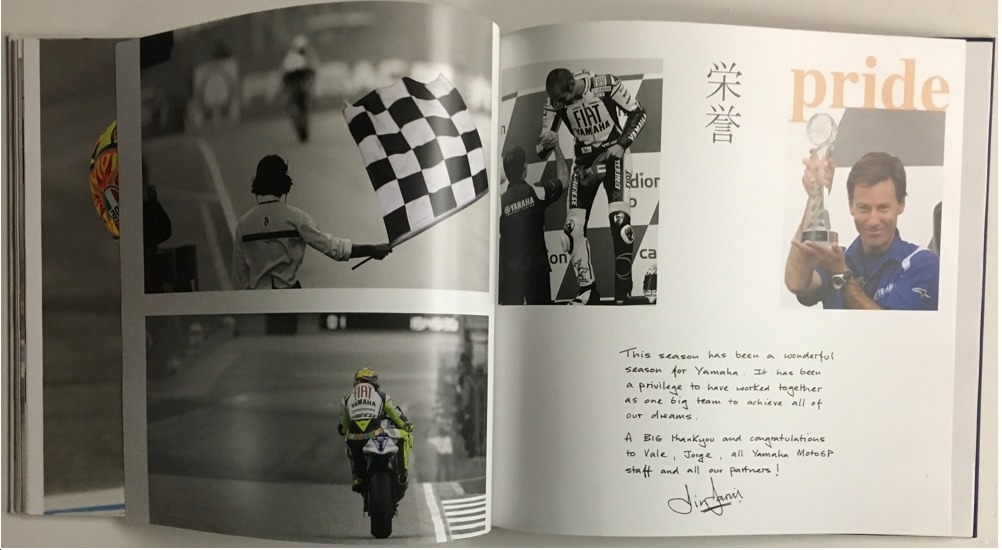 FIAT
YAMAHA
FIAT
YAMAHA
YAMAHA
栄誉
pride
This season has been a wonderful
season for Yamaha. It has been
a privilege to have worked together
as one big team to achieve all of
our dreams.
A BIG thankyou and congratulations
to Vale, Jorge, all Yamaha MotoGP
staff and all our partners!